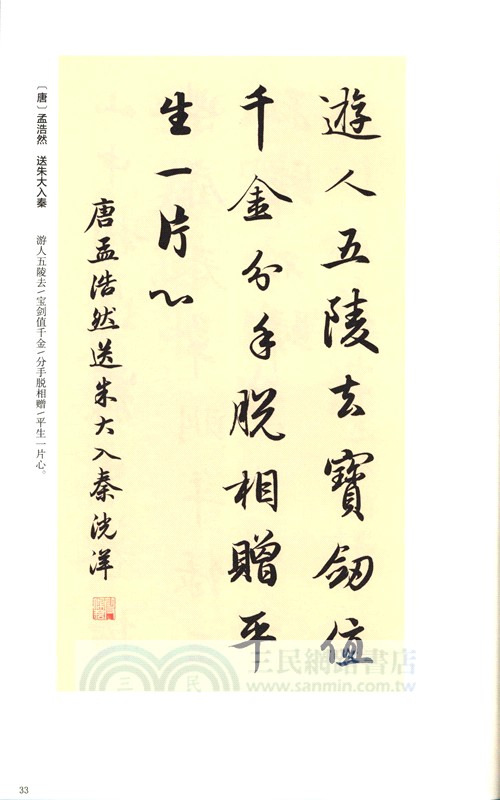 遊人五陵去寶劒值
千金分手脱相贈平
生一片心
唐孟浩然送朱大入秦 洸洋
〔唐〕孟浩然 送朱大入秦 游人五陵去/宝剑值千金/分手脱相赠/平生一片心。
三民網路書店
三民
www.sanmin.com.tw
33